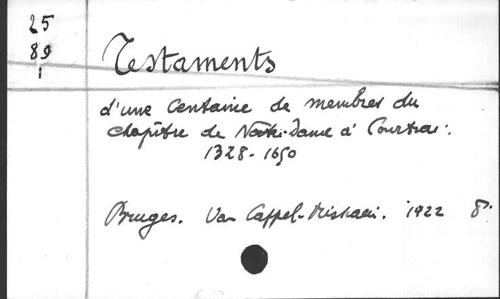 25
89
1
Testaments
d'une centaine de membres du
chapitre de Notre-Dame à Courtrai.
1328-1650
Bruges. Van Cappel-Missiaen. 1922 8°.